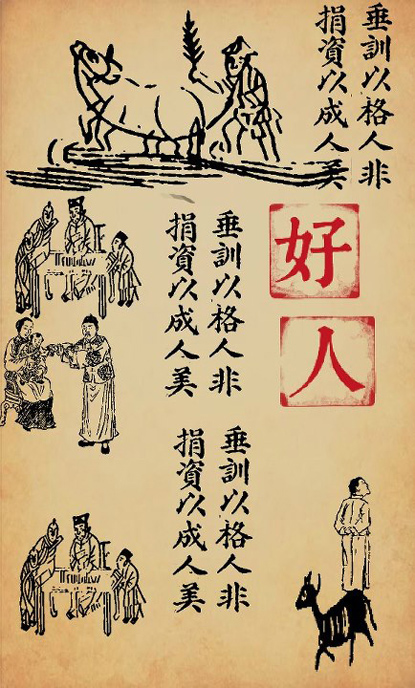 垂訓以格人非
捐資以成人美
好
人
垂訓以格人非
捐資以成人美
垂訓以格人非
捐資以成人美